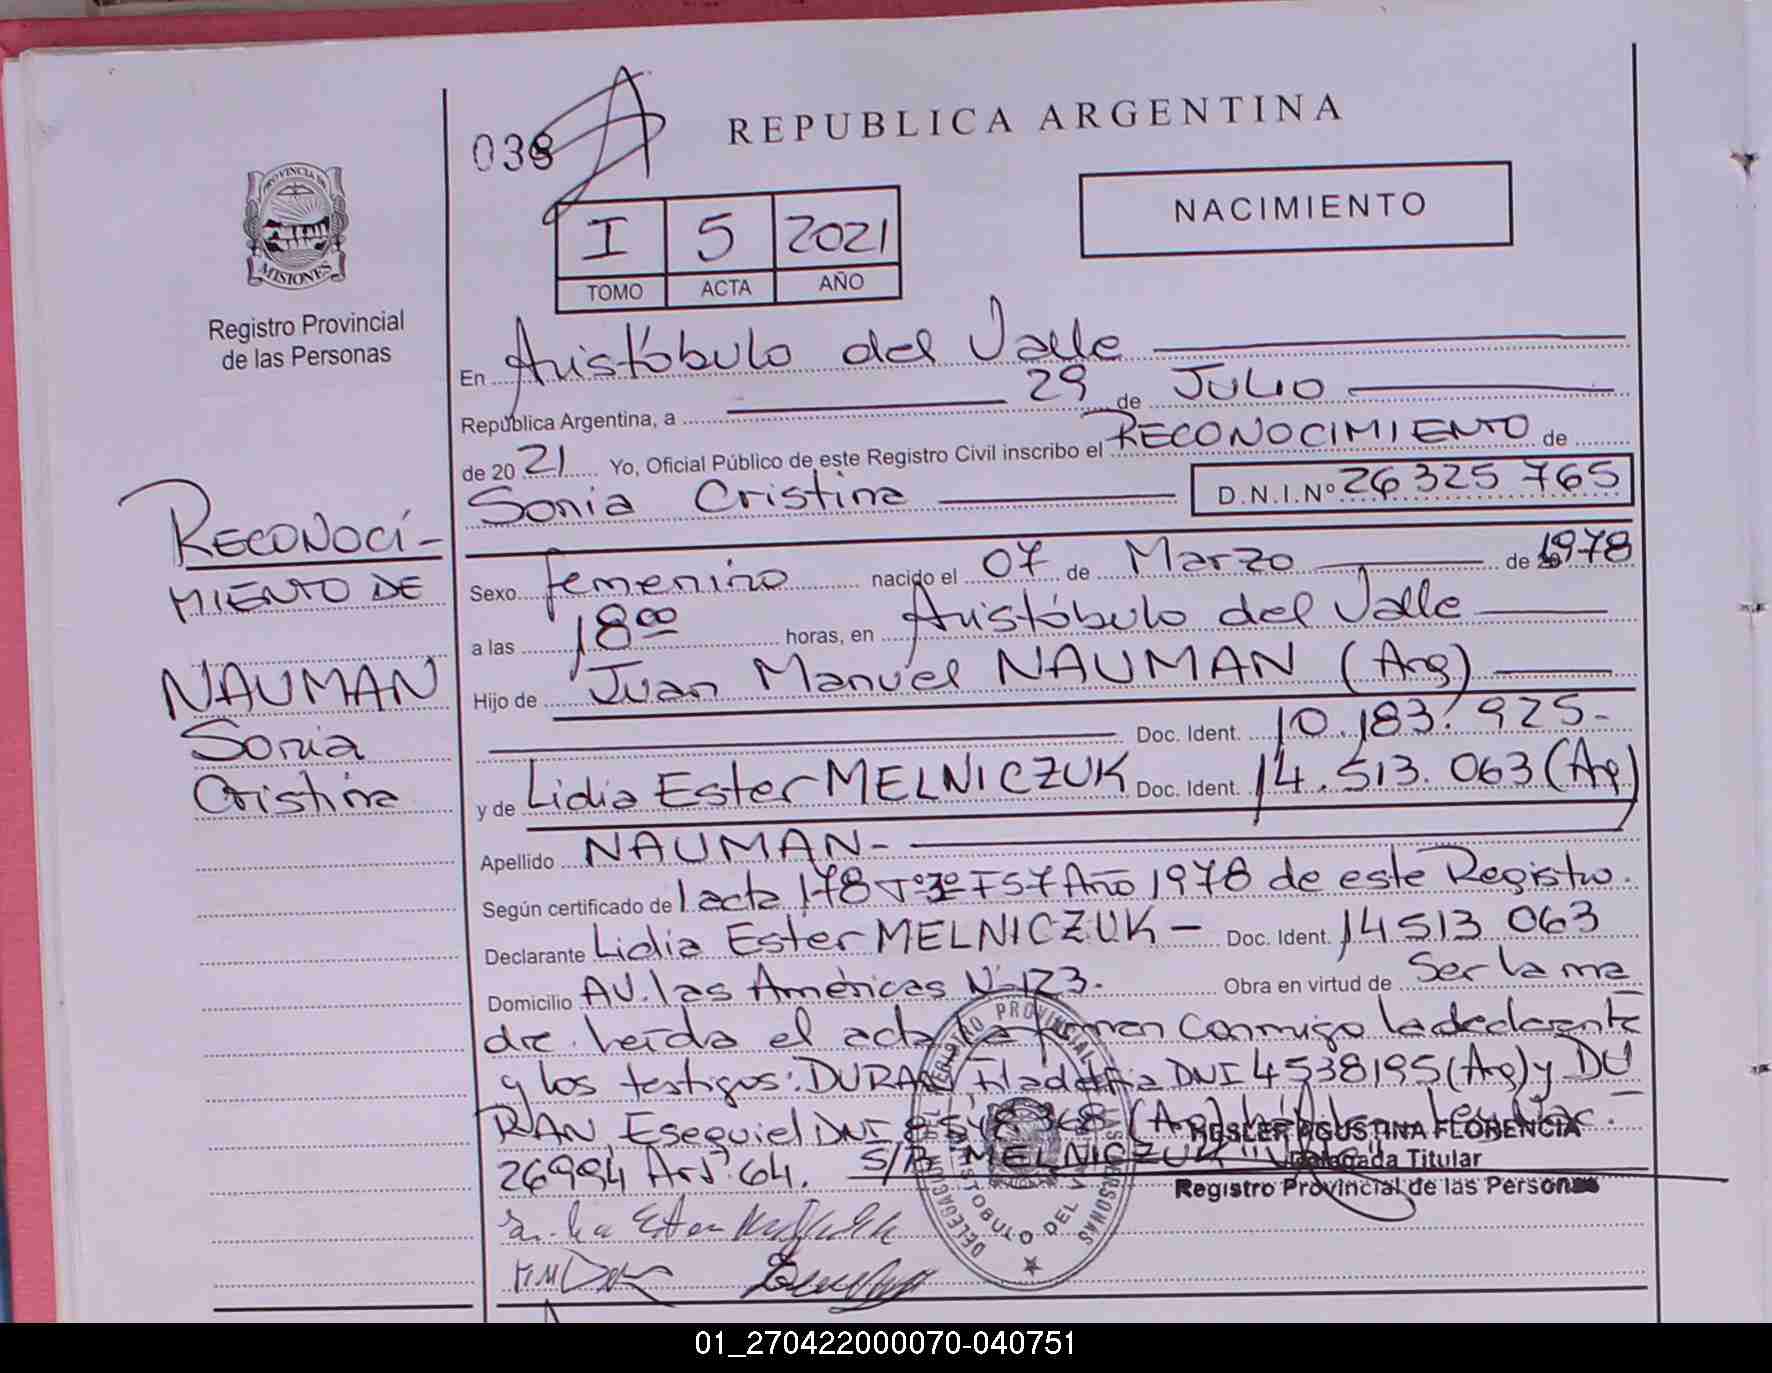 038
REPUBLICA ARGENTINA
NACIMIENTO
I 5 2021
TOMO ACTA AÑO
PROVINCIA DE
MISIONES
Registro Provincial
de las Personas
En Aristóbulo del Valle
República Argentina, a 29 de JULIO
de 2021 Yo, Oficial Público de este Registro Civil inscribo el RECONOCIMIENTO de
Sonia Cristina D.N.I.Nº 26325765
Sexo femenino nacido el 07 de Marzo de 1978
a las 18 00 horas, en Aristóbulo del Valle
Hijo de Juan Manuel NAUMAN (Arg)
Doc. Ident. 10.183.925-
y de Lidia Ester MELNICZUK Doc. Ident. 14.513.063 (Arg)
Apellido NAUMAN-
Según certificado de 1 acta 178 Tº3º F57 Año 1978 de este Registro.
Declarante Lidia Ester MELNICZUK - Doc. Ident. 14513 063
Domicilio AV. las Américas Nº 123. Obra en virtud de Ser la ma
dre. Leída el acta la firman conmigo la declarante
y los testigos: DURAN, DNI 4538195 (Arg) y DU
RAN, Esequiel DNI (Arg)
26994 Art. 64. S/R "MELNICZUK"
RESLER AGUSTINA FLORENCIA
Delegada Titular
Registro Provincial de las Personas
RECONOCI-
MIENTO DE
NAUMAN
Sonia
Cristina
01_270422000070-040751